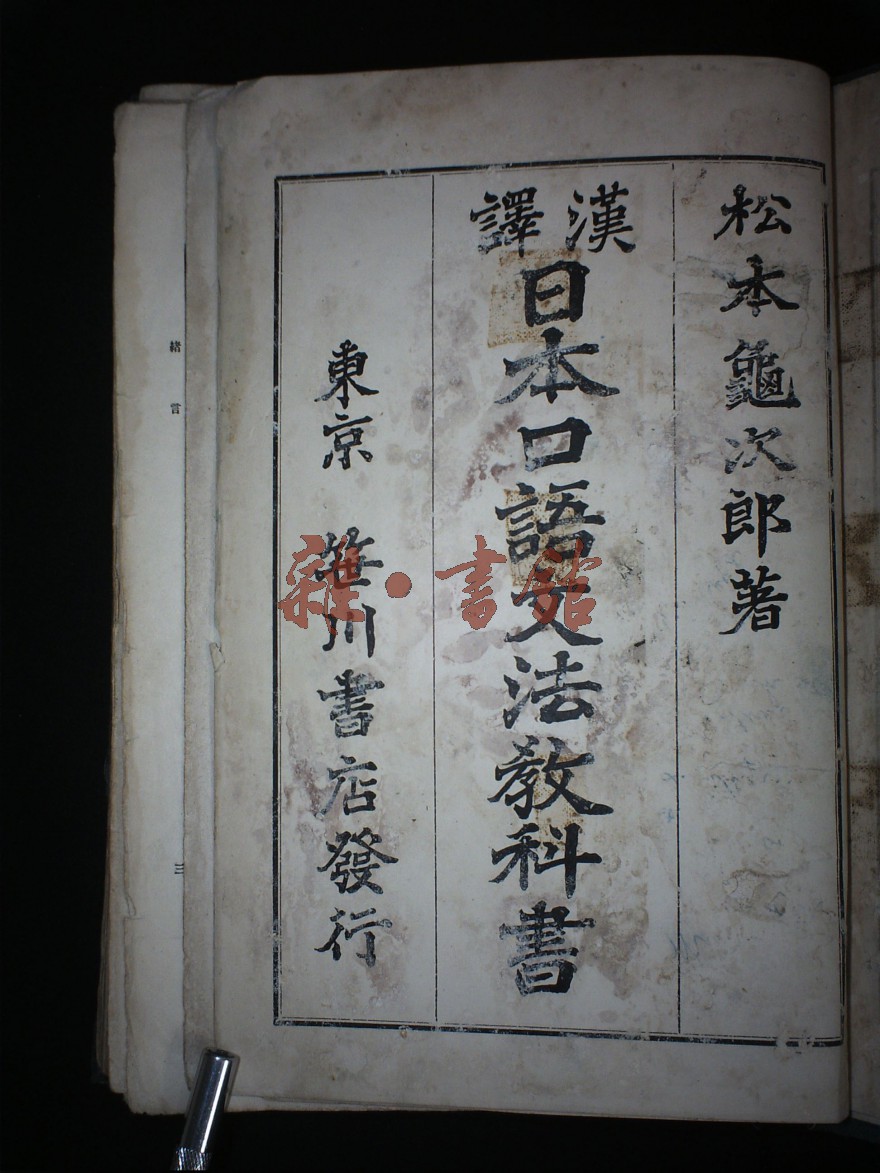 松本龜次郎著
漢譯
日本口語文法教科書
東京 笹川書店發行
緒言
三
雜·書館